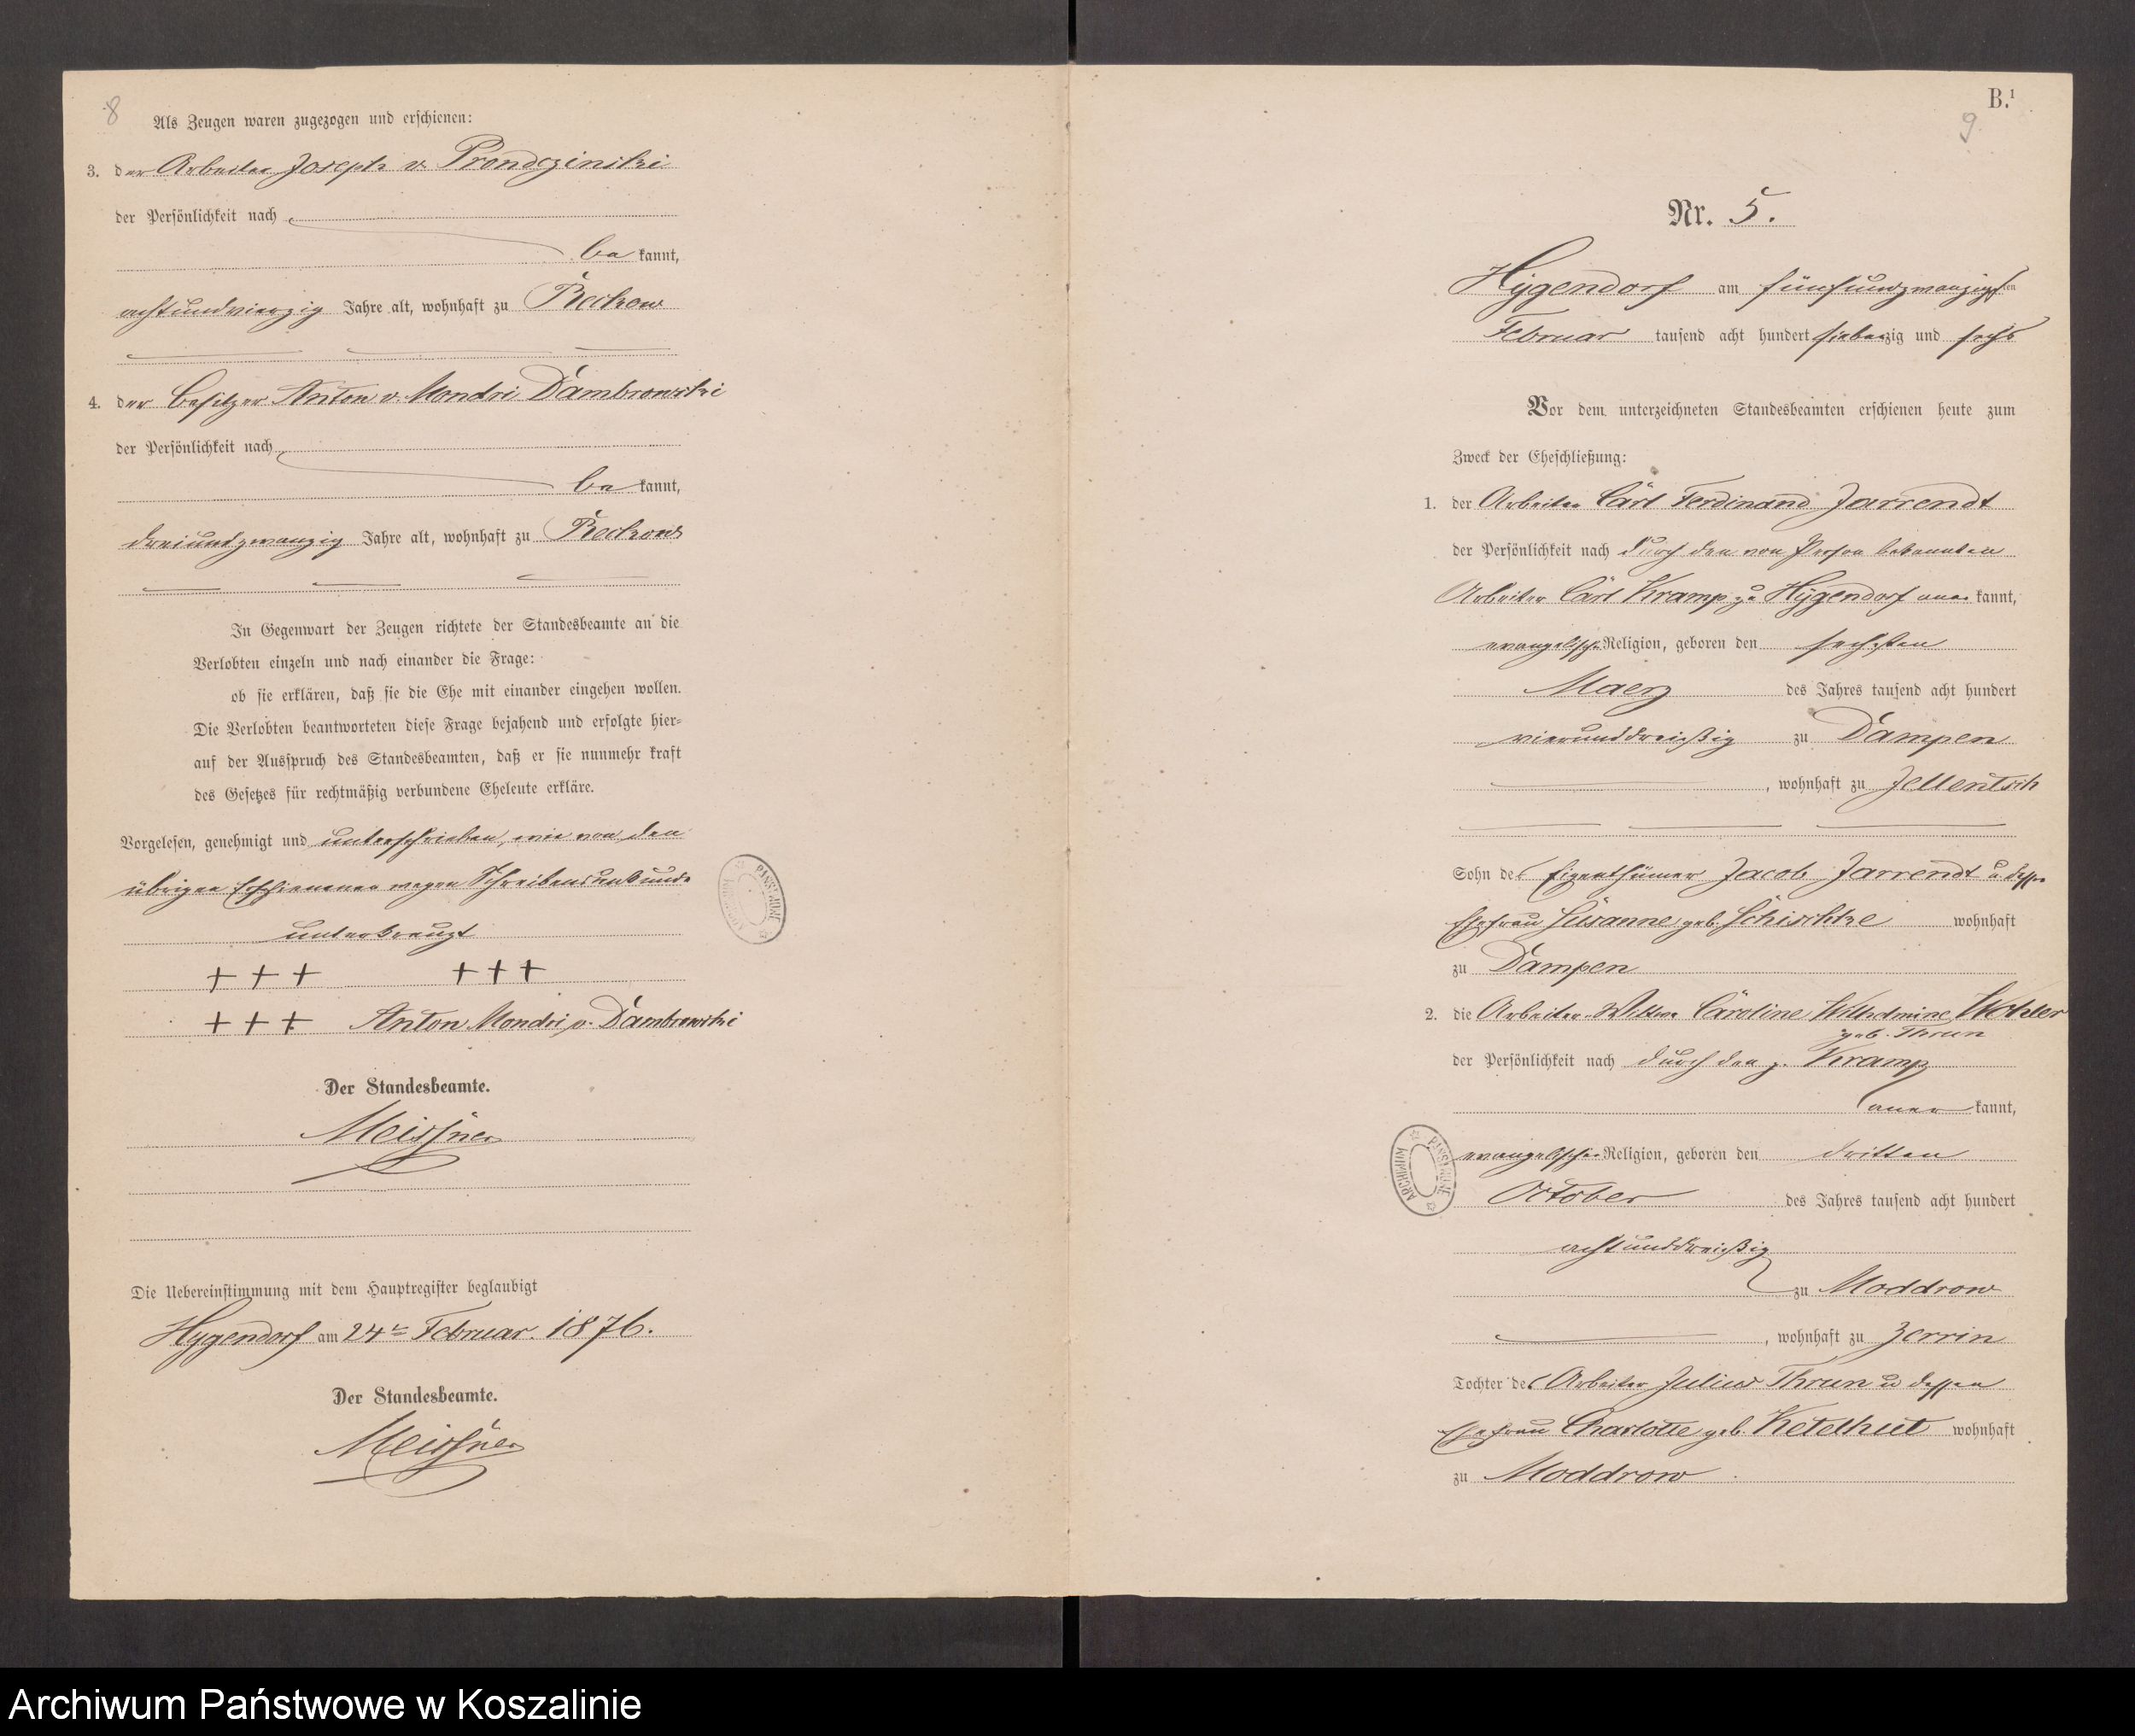 8
Als Zeugen waren zugezogen und erschienen:
3. der Arbeiter Joseph v. Prondczinski
der Persönlichkeit nach
bekannt,
achtundvierzig Jahre alt, wohnhaft zu Reckow
4. der Besitzer Anton v. Mondri Dambrowski
der Persönlichkeit nach
bekannt,
dreiundzwanzig Jahre alt, wohnhaft zu Reckow
In Gegenwart der Zeugen richtete der Standesbeamte an die
Verlobten einzeln und nach einander die Frage:
ob sie erklären, daß sie die Ehe mit einander eingehen wollen.
Die Verlobten beantworteten diese Frage bejahend und erfolgte hier-
auf der Ausspruch des Standesbeamten, daß er sie nunmehr kraft
des Gesetzes für rechtmäßig verbundene Eheleute erkläre.
Vorgelesen, genehmigt und unterschrieben, wie von den
übrigen Erschienenen wegen Schreibensunkunde
unterkreuzt
+ + + + + +
+ + + Anton Mondri v. Dambrowski
Der Standesbeamte.
Meissner
Die Uebereinstimmung mit dem Hauptregister beglaubigt
Hygendorf am 24ten Februar 1876.
Der Standesbeamte.
Meissner
B.1
9
Nr. 5.
Hygendorf am fünfundzwanzigsten
Februar tausend acht hundert siebenzig und sechs
Vor dem unterzeichneten Standesbeamten erschienen heute zum
Zweck der Eheschließung:
1. der Arbeiter Carl Ferdinand Jarrendt
der Persönlichkeit nach durch den von Person bekannten
Arbeiter Carl Kramp zu Hygendorf anerkannt,
evangelischer Religion, geboren den sechsten
Maerz des Jahres tausend acht hundert
vierunddreißig zu Dampen
, wohnhaft zu Jellentsch
Sohn des Eigenthümer Jacob Jarrendt u. dessen
Ehefrau Susanne geb. Schischke wohnhaft
zu Dampen
2. die Arbeiter-Wittwe Caroline Wilhelmine Wohler
geb. Thrun
der Persönlichkeit nach durch den p. Kramp
anerkannt,
evangelischer Religion, geboren den dritten
October des Jahres tausend acht hundert
achtunddreißig
zu Moddrow
, wohnhaft zu Zerrin
Tochter des Arbeiter Julius Thrun u dessen
Ehefrau Charlotte geb. Ketelhut wohnhaft
zu Moddrow
Archiwum Państwowe w Koszalinie